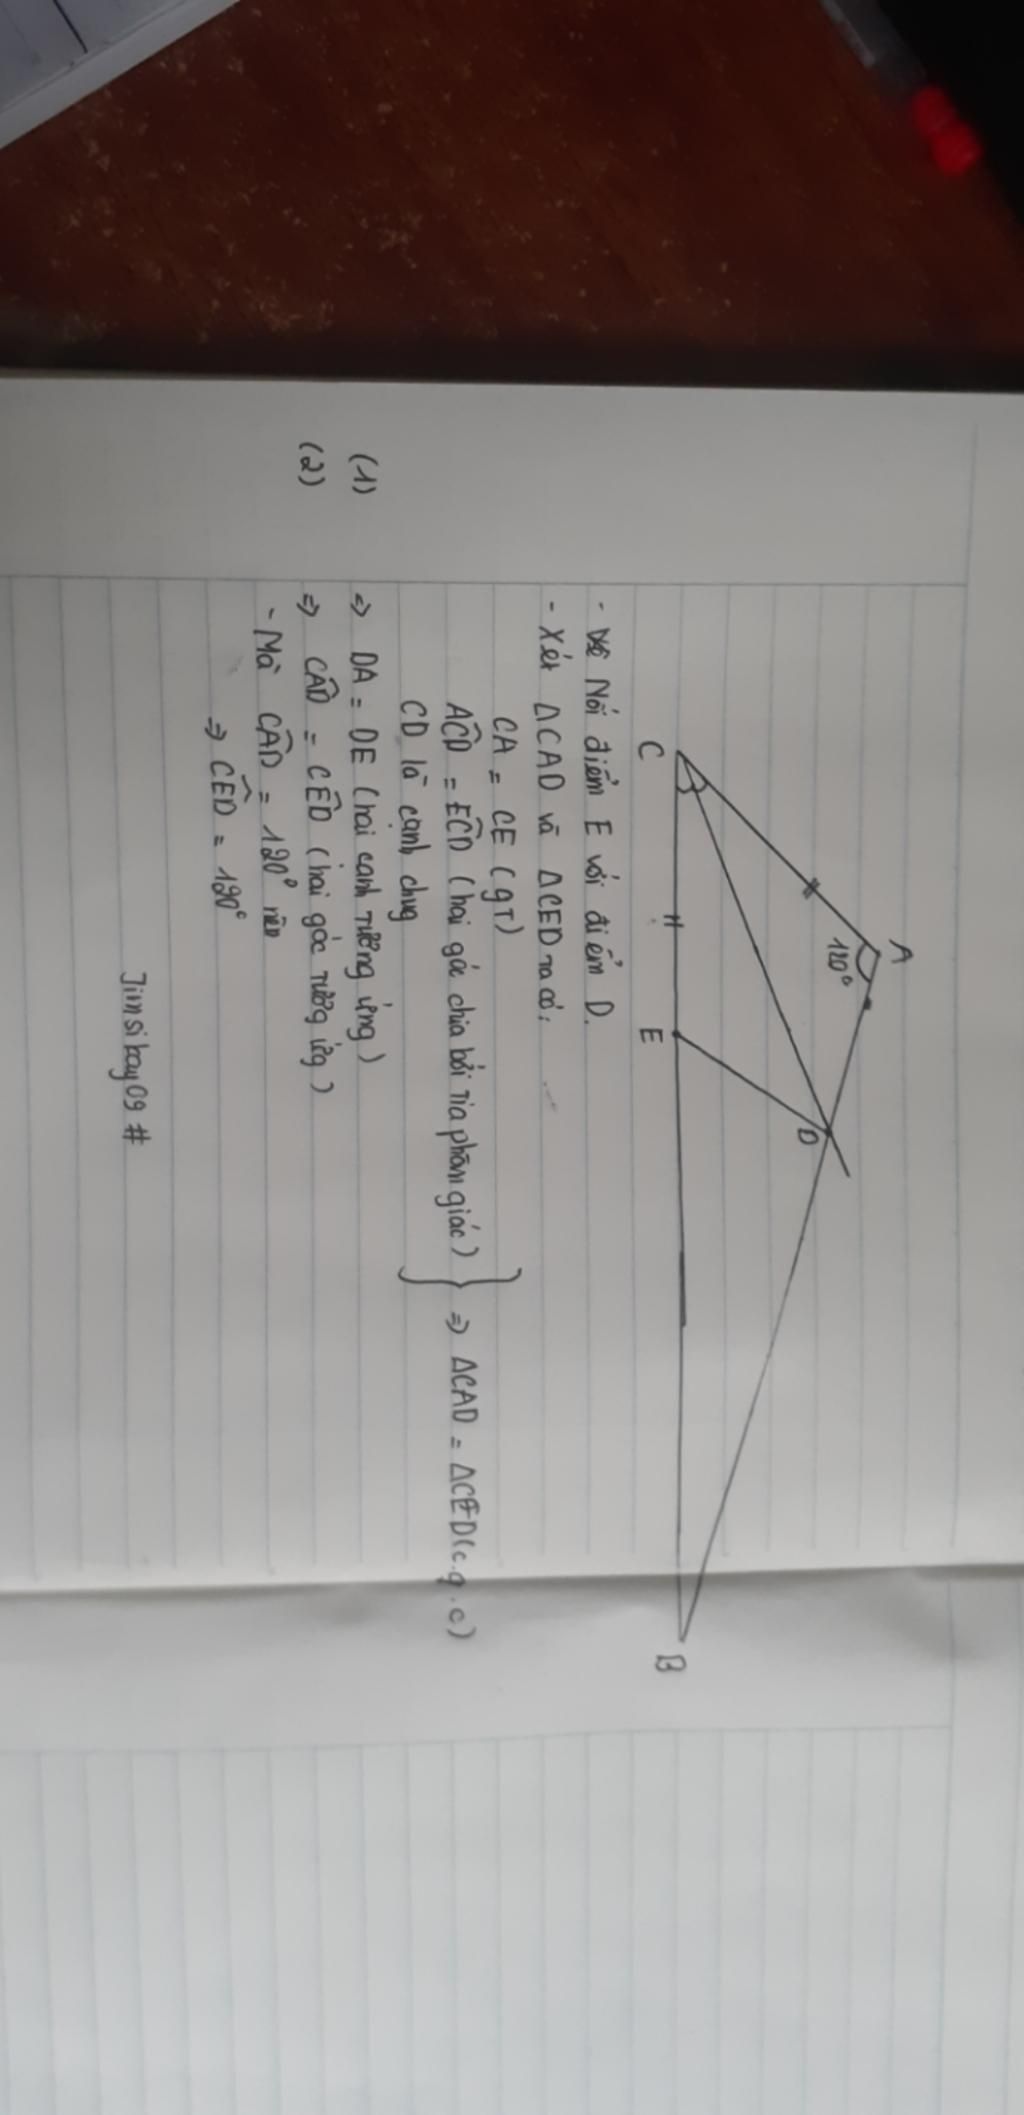 A
120°
D
C
E
B
- Nối điểm E với điểm D.
- Xét ΔCAD và ΔCED ta có:
CA = CE (gT)
ACD = ECD (hai góc chia bởi Tia phân giác) } => ΔCAD = ΔCED (c.g.c)
CD là cạnh chug
(1) => DA = DE (hai cạnh Tương ứng)
(2) => CAD = CED (hai góc Tương ứg)
- Mà CAD = 120° nên
=> CED = 120°
Jimsikay09 #